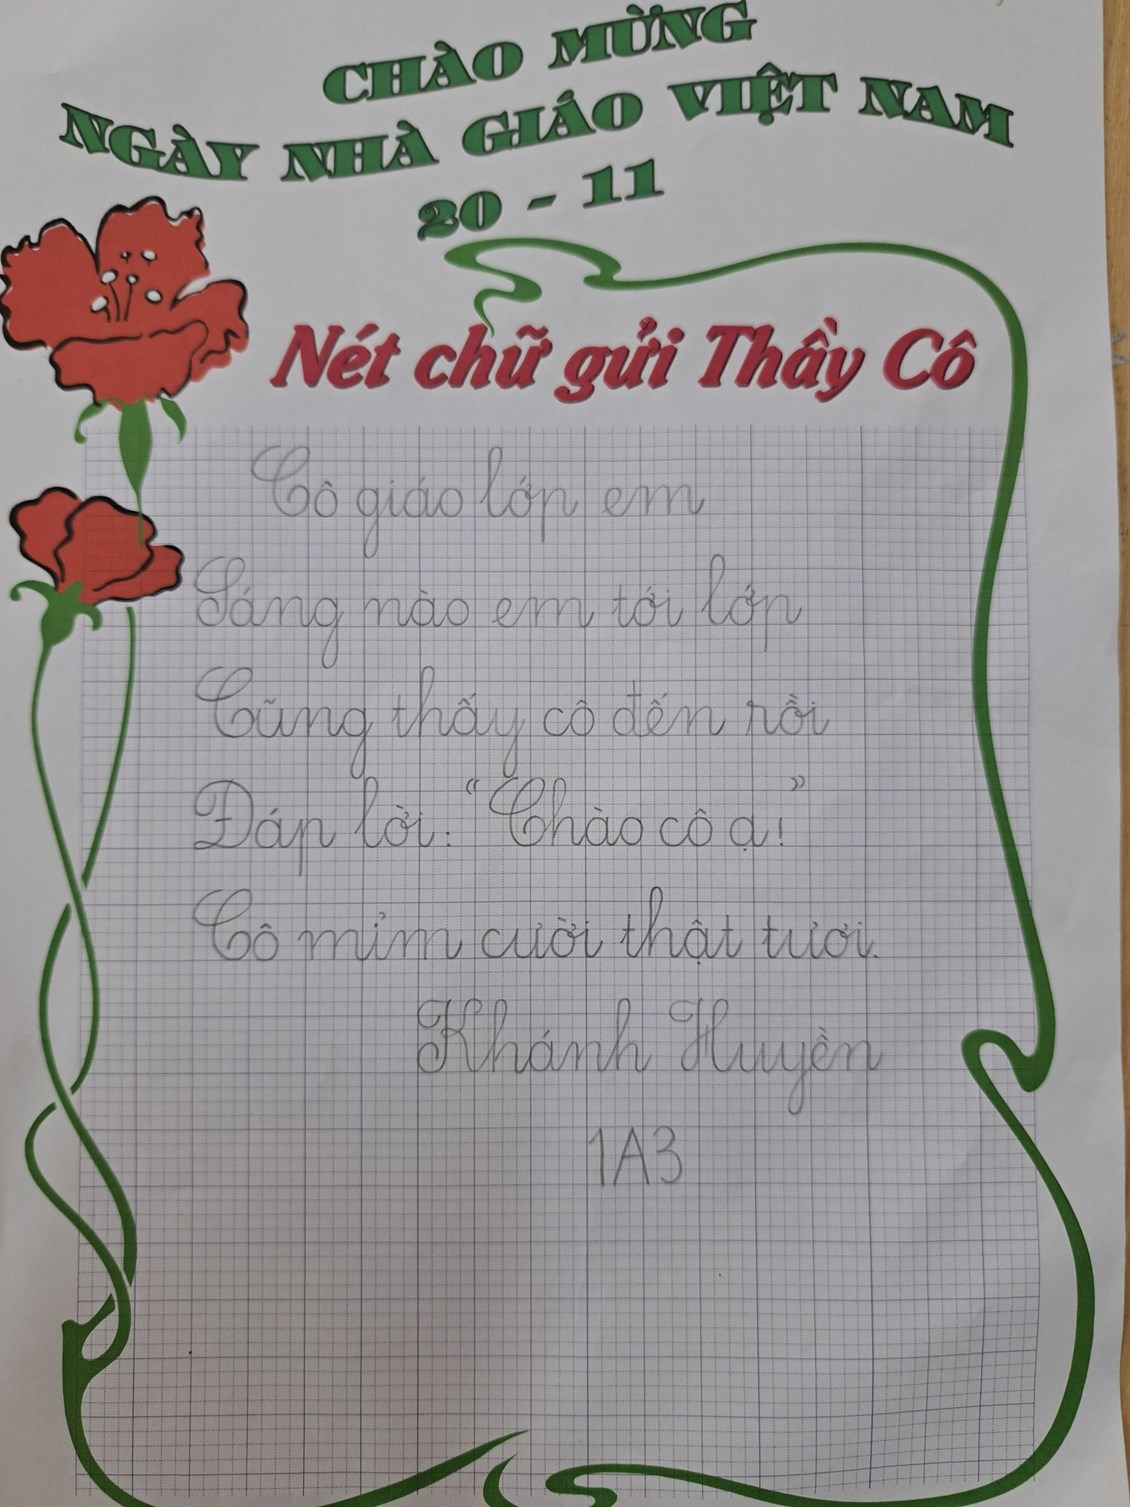 CHÀO MỪNG
NGÀY NHÀ GIÁO VIỆT NAM
20 - 11
Nét chữ gửi Thầy Cô
Cô giáo lớp em
Sáng nào em tới lớp
Cũng thấy cô đến rồi
Đáp lời: "Chào cô ạ!"
Cô mỉm cười thật tươi.
Khánh Huyền
1A3